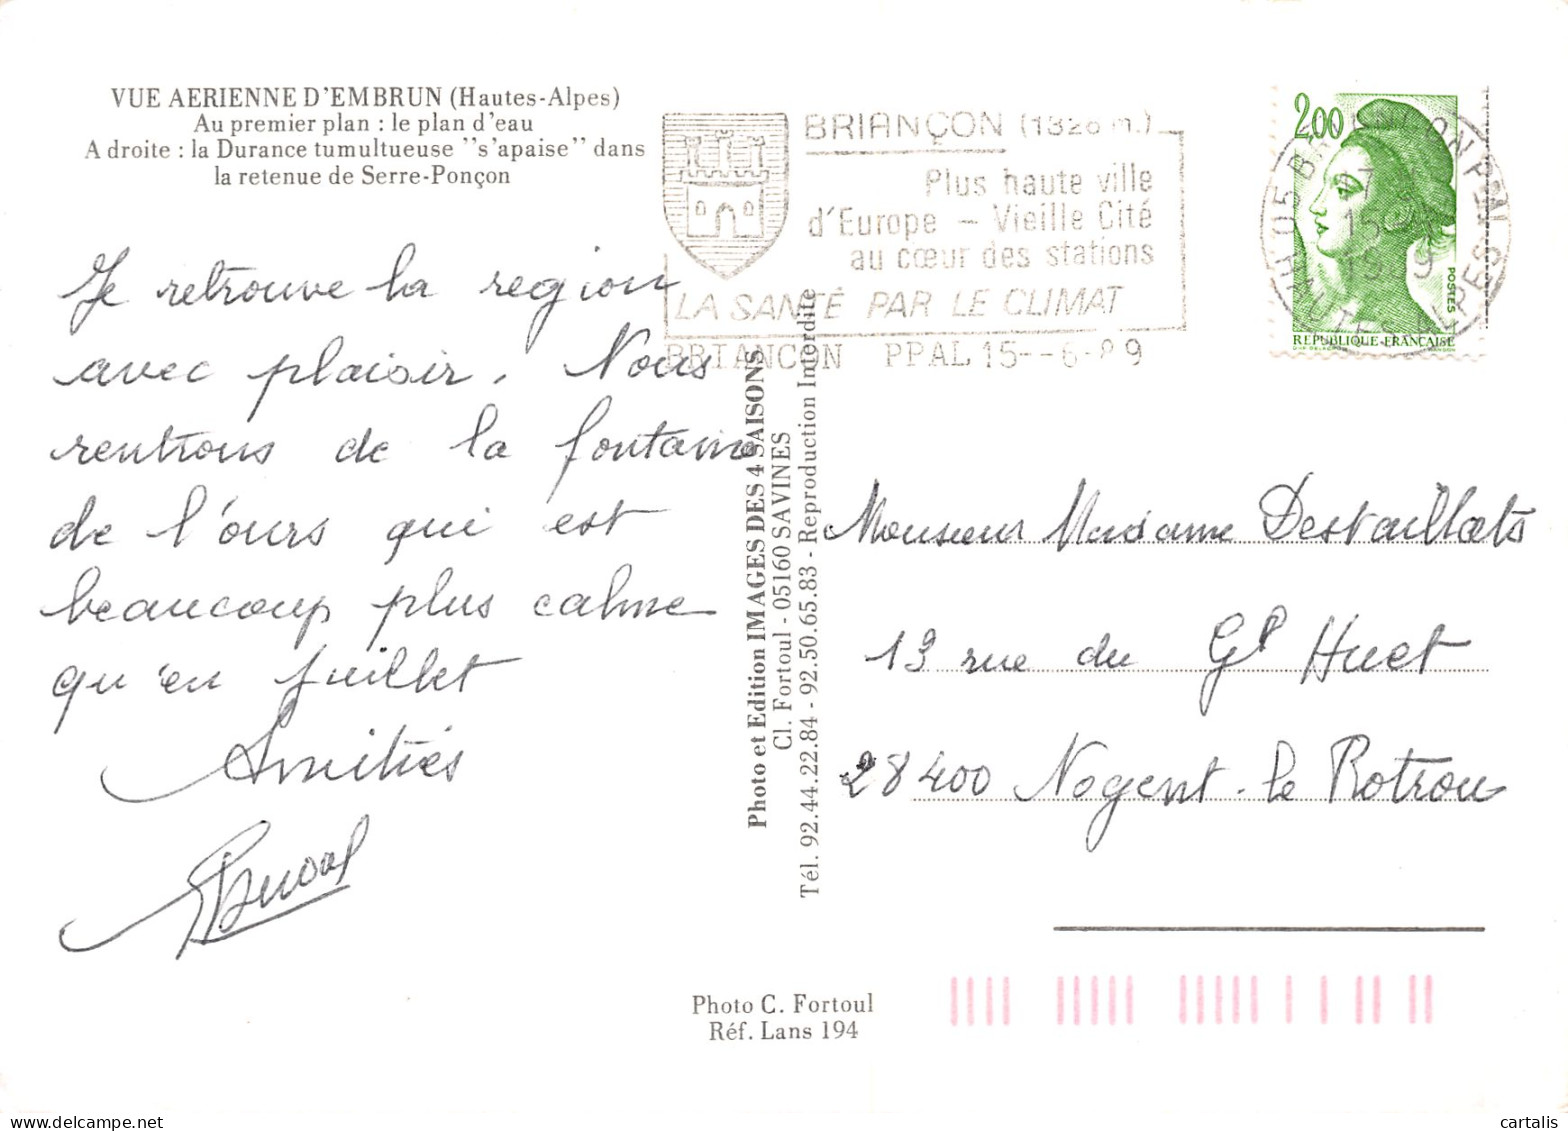 VUE AERIENNE D'EMBRUN (Hautes-Alpes)
Au premier plan : le plan d'eau
A droite : la Durance tumultueuse "s'apaise" dans
la retenue de Serre-Ponçon
Je retrouve la region
avec plaisir. Nous
rentrons de la fontaine
de l'ours qui est
beaucoup plus calme
qu'en Juillet
Amitiés
BRIANÇON (1326 m.)
Plus haute ville
d'Europe - Vieille Cité
au cœur des stations
LA SANTÉ PAR LE CLIMAT
BRIANCON PPAL 15--6-89
2,00
POSTES
REPUBLIQUE FRANÇAISE
05 BRIANCON Pal
HAUTES ALPES
Photo et Edition IMAGES DES 4 SAISONS
Cl. Fortoul - 05160 SAVINES
Tél. 92.44.22.84 - 92.50.65.83 - Reproduction Interdite
Monsieur Madame Destaillats
13 rue du Gl Huet
28400 Nogent-le Rotrou
Photo C. Fortoul
Réf. Lans 194
cartalis